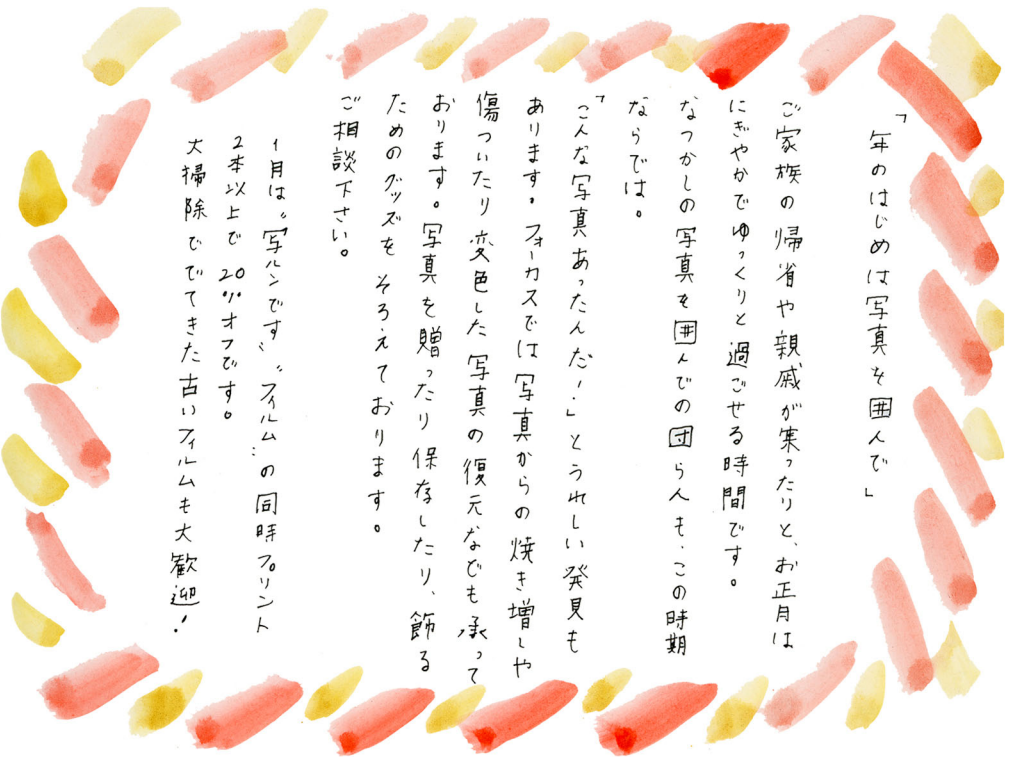 「年のはじめは写真を囲んで」
ご家族の帰省や親戚が集ったりと、お正月は
にぎやかでゆっくりと過ごせる時間です。
なつかしの写真を囲んでの団らんも、この時期
ならでは。
「こんな写真あったんだ！」とうれしい発見も
あります。フォーカスでは写真からの焼き増しや
傷ついたり変色した写真の復元なども承って
おります。写真を贈ったり保存したり、飾る
ためのグッズをそろえております。
ご相談下さい。
1月は“写ルンです”“フィルム”の同時プリント
2本以上で20%オフです。
大掃除ででてきた古いフィルムも大歓迎！